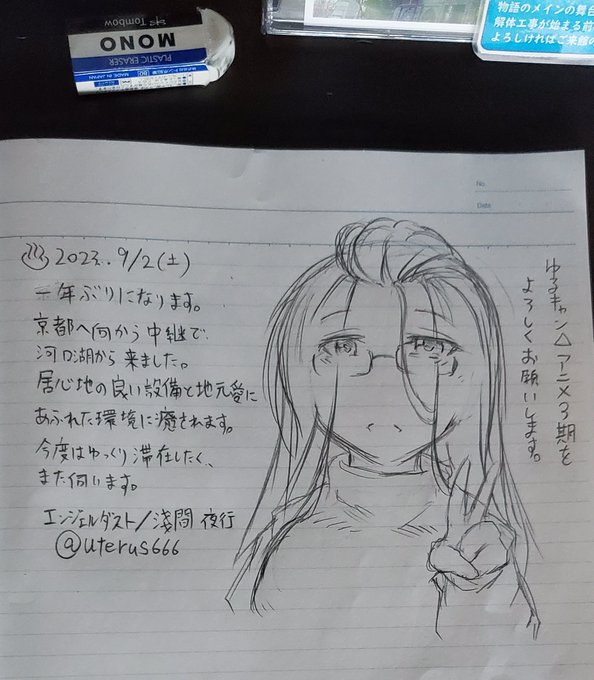 Tombow
MONO
PLASTIC ERASER
MADE IN JAPAN
物語のメインの舞台
解体工事が始まる前
よろしければご来館の
No.
Date
♨ 2023. 9/2(土)
一年ぶりになります。
京都へ向かう中継で
河口湖から来ました。
居心地の良い設備と地元愛に
あふれた環境に癒されます。
今度はゆっくり滞在したく、
また伺います。
エンジェルダスト/淺間 夜行
@uterus666
ゆるキャン△ アニメ3期を
よろしくお願いします。